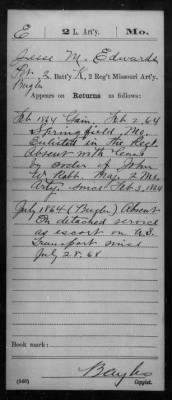 E 2 L. Art'y. Mo.
Jesse M. Edwards
Pvt. & Batt'y K, 2 Reg't Missouri Art'y.
Bugler
Appears on Returns as follows:
Feb 1864 Gain, Feb 2, 64
Springfield, Mo.
Enlisted in the Regt.
Absent with leave
by order of John
W. Rabb. Maj. 2 Mo.
Arty. since Feb 3, 1864
July 1864 (Bugler) Absent
On detached service
as escort on U.S.
Transport since
July 28, 64
Book mark:
(546)
Copyist.